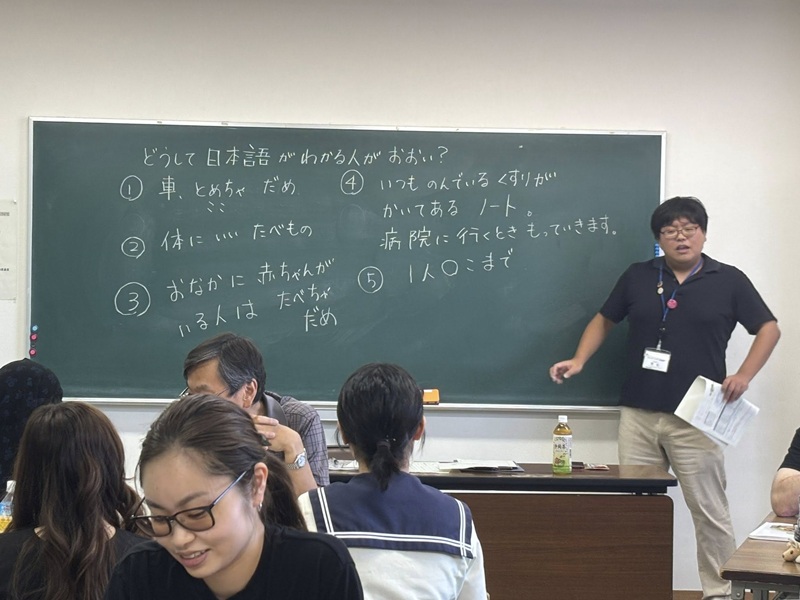 どうして日本語がわかる人がおおい?
① 車、とめちゃ だめ
② 体に いい たべもの
③ おなかに 赤ちゃんが
いる人は たべちゃ
だめ
④ いつも のんでいる くすりが
かいてある ノート。
病院に 行くとき もっていきます。
⑤ 1人〇こまで